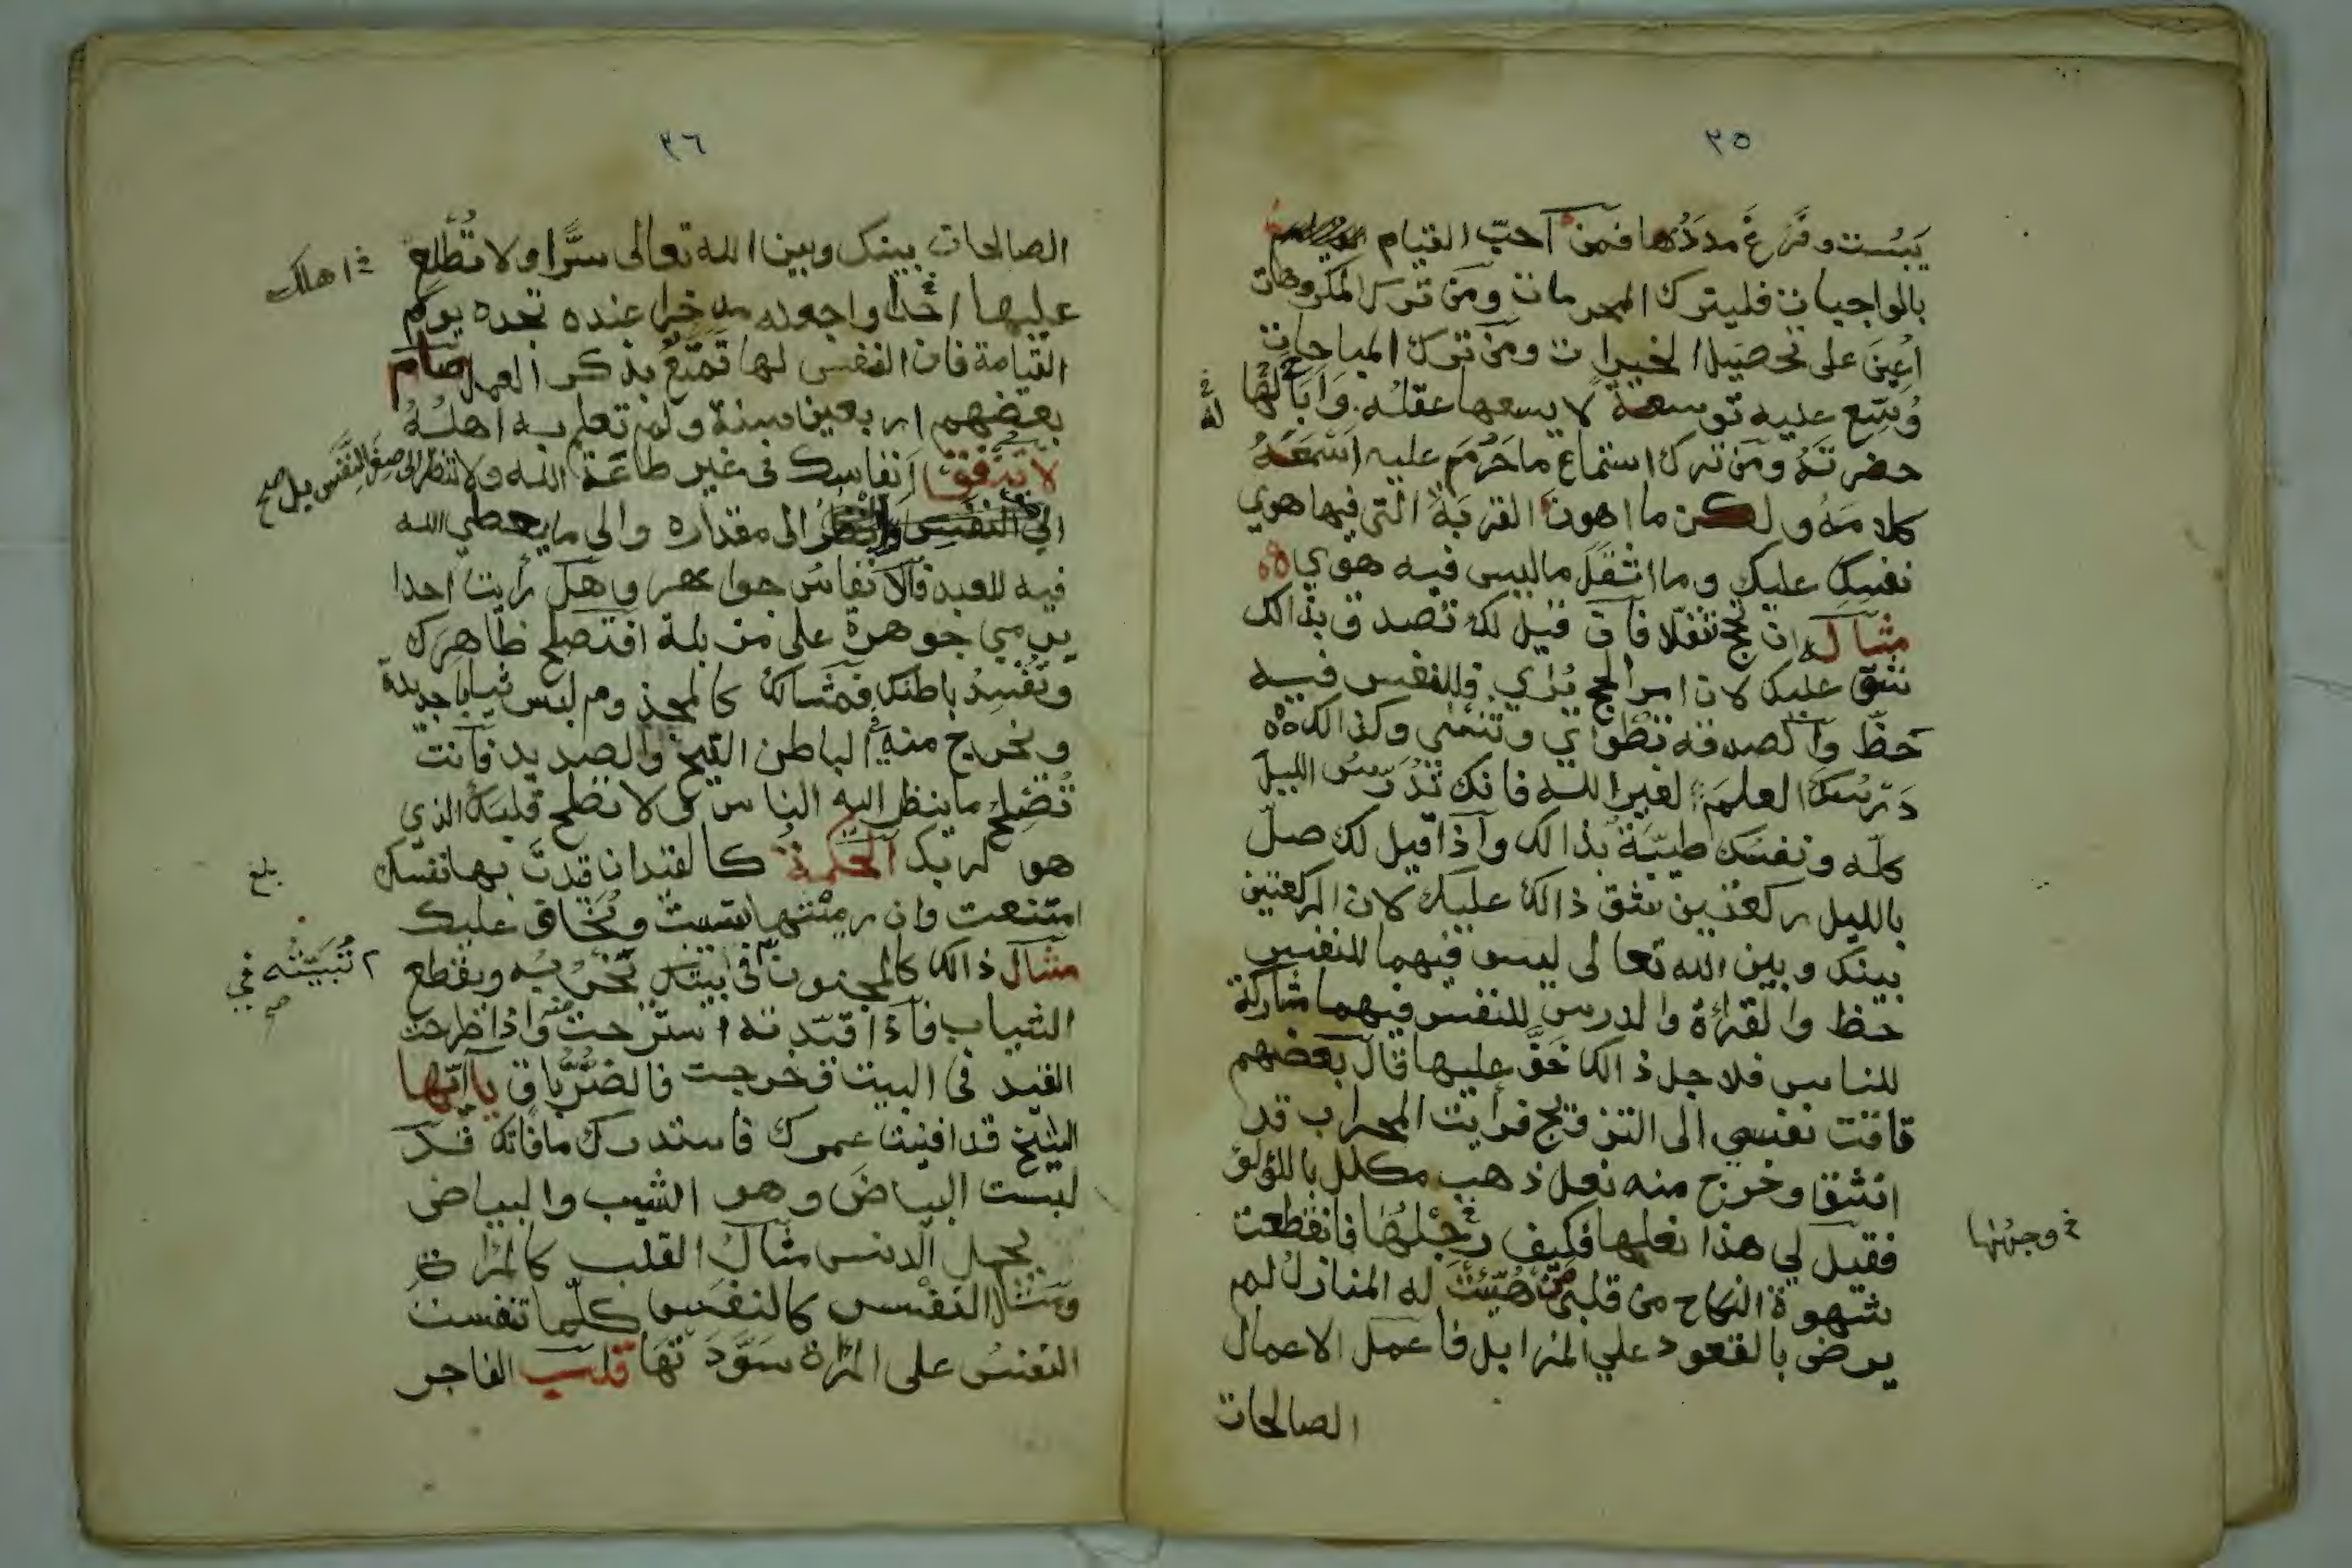 ٣٥
يبست وفرغ مددها فمن احب القيام
بالواجبات فليترك المحرمات ومن ترك المكروهات
اعين على تحصيل الخيرات ومن ترك المباحات
وسع عليه توسعة لا يسعها عقله واباح لها
له
حضرته ومن ترك استماع ما حرم عليه اسمعه
كلامه ولكن ما اهون القربة التي فيها هوي
نفسك عليك وما اثقل ما ليس فيه هوي
مثاله ان تحج تنفلا فان قيل لك تصدق بذالك
شق عليك لان امر الحج يرا ي وللنفس فيه
حظ والصدقة تطوي وتنسي وكذالك
درسك العلم لغير الله فانك تدرس الليل
كله ونفسك طيبة بذالك واذا قيل لك صل
بالليل ركعتين شق ذالك عليك لان الركعتين
بينك وبين الله تعالى ليس فيهما للنفس
حظ والقراءة والدرس للنفس فيهما مشاركة
للناس فلاجل ذالك خف عليها قال بعضهم
تاقت نفسي الى التزويج فرايت المحراب قد
انشق وخرج منه نعل ذهب مكلل باللؤلؤ
فقيل لي هذا نعلها فكيف رجلها فانقطعت
وجهها
شهوة النكاح من قلبي من هيئت له المنازل لم
يرض بالقعود علي المزابل فاعمل الاعمال
الصالحات
٣٦
الصالحات بينك وبين الله تعالى سرا ولا تطلع
اهلك
عليها احدا واجعله مدخرا عنده تجده يوم
القيامة فان النفس لها تمتع بذكر العمل صام
بعضهم اربعين سنة ولم تعلم به اهله
لا تنفق انفاسك في غير طاعة الله ولا تنظر الى صغر النفس بل صح
الي النفس وانظر الى مقداره والى ما يعطي الله
فيه للعبد فالانفاس جواهر وهل رايت احدا
يرمي جوهرة على مزبلة افتصلح ظاهرك
وتفسد باطنك فمثالك كالمجذوم لبس ثيابا جديدة
وتخرج منه في الباطن القيح والصديد فانت
تصلح ما ينظر اليه الناس ولا تصلح قلبك الذي
هو لربك الحكمة كالقيد ان قيدت بها نفسك
بلغ
امتنعت وان رميتها تسيبت ويخاف عليك
مثال ذالك كالمجنون في بيتك تخربه ويقطع
تبيته في
صح
الثياب فاذا قيدته استرحت منه واذا طرحت
القيد في البيت وخرجت فالضرر باق ياايها
الشيخ قد افنيت عمرك فاستدرك ما فاتك قد
لبست البياض وهو الشيب والبياض
يحمل الدنس مثال القلب كالمراة
ومثال النفس كالنفس كلما تنفست
النفس على المراة سودتها قلب الفاجر